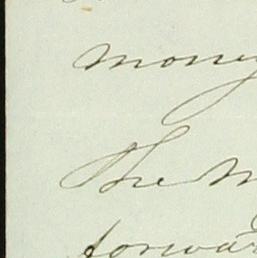 money
The
forwar